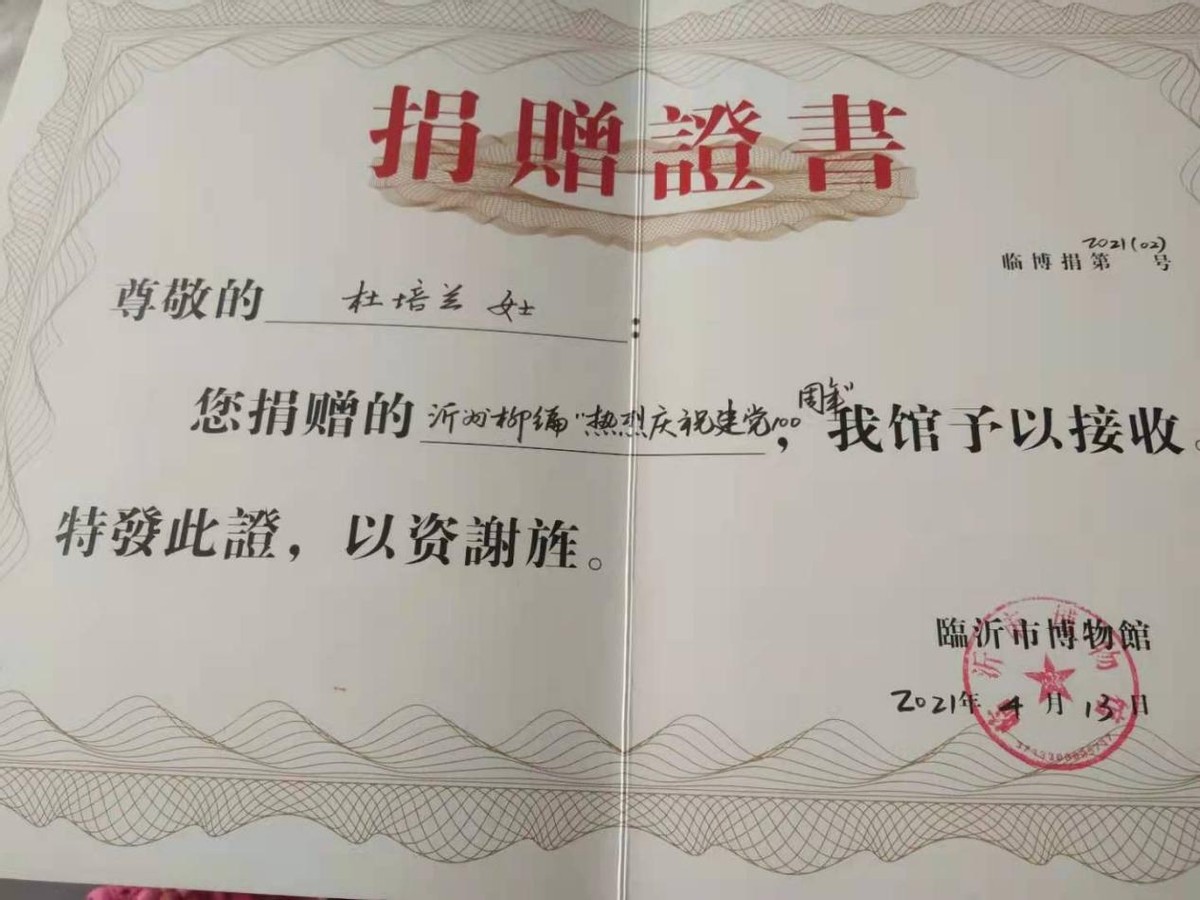 捐贈證書
临博捐第2021(02)号
尊敬的 杜培兰 女士:
您捐赠的 沂州柳编"热烈庆祝建党100周年",我馆予以接收。
特發此證,以资謝旌。
臨沂市博物館
2021年4月13日
临沂市博物馆